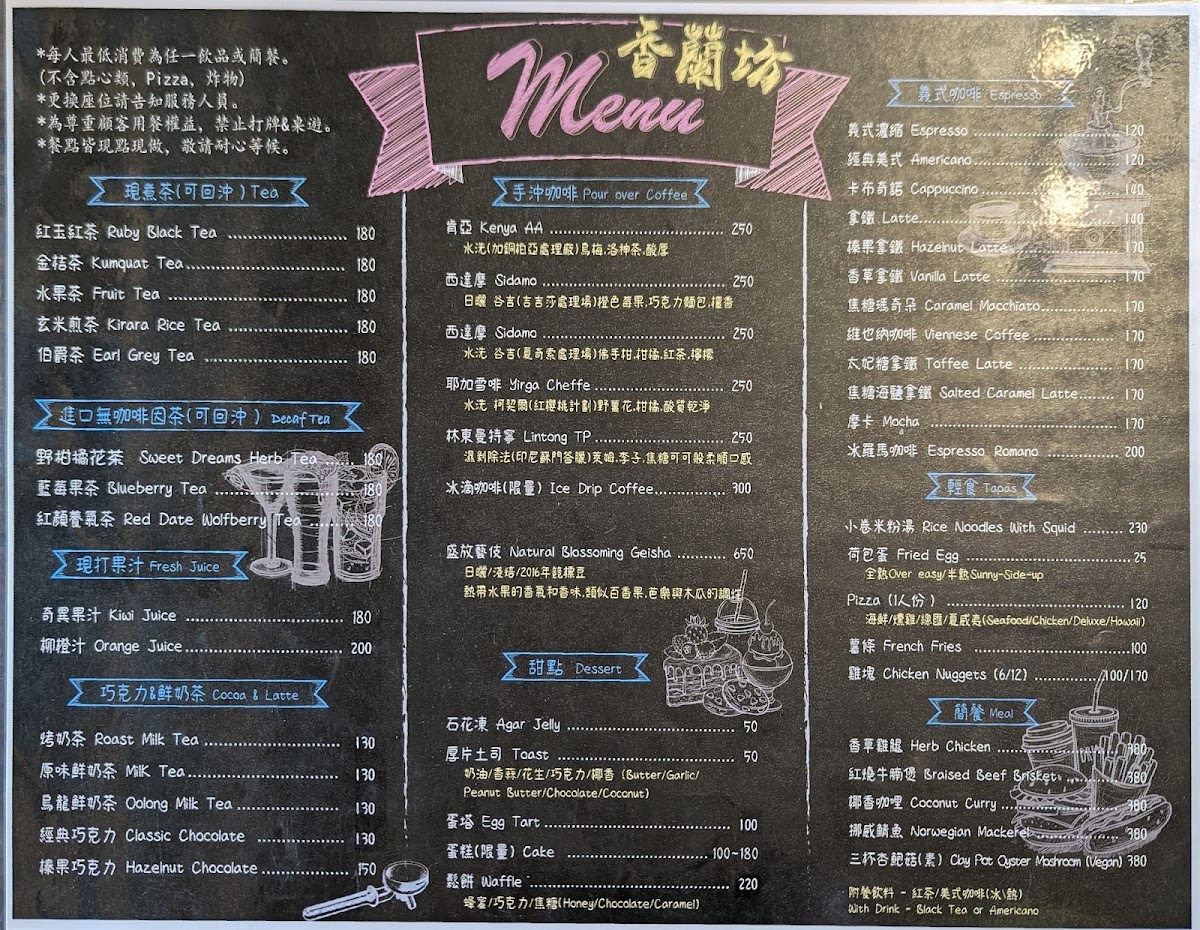 *每人最低消費為任一飲品或簡餐。
(不含點心類, Pizza, 炸物)
*更換座位請告知服務人員。
*為尊重顧客用餐權益, 禁止打牌&桌遊。
*餐點皆現點現做, 敬請耐心等候。
香蘭坊
Menu
現煮茶(可回沖) Tea
紅玉紅茶 Ruby Black Tea 180
金桔茶 Kumquat Tea 180
水果茶 Fruit Tea 180
玄米煎茶 Kirara Rice Tea 180
伯爵茶 Earl Grey Tea 180
進口無咖啡因茶(可回沖) Decaf Tea
野柑橘花茶 Sweet Dreams Herb Tea 180
藍莓果茶 Blueberry Tea 180
紅顏養氣茶 Red Date Wolfberry Tea 180
現打果汁 Fresh Juice
奇異果汁 Kiwi Juice 180
柳橙汁 Orange Juice 200
巧克力&鮮奶茶 Cocoa & Latte
烤奶茶 Roast Milk Tea 130
原味鮮奶茶 Milk Tea 130
烏龍鮮奶茶 Oolong Milk Tea 130
經典巧克力 Classic Chocolate 130
榛果巧克力 Hazelnut Chocolate 150
手沖咖啡 Pour over Coffee
肯亞 Kenya AA 250
水洗(加鋼柏亞處理廠)烏梅.洛神茶.酸厚
西達摩 Sidamo 250
日曬 谷吉(吉吉莎處理場)橙色莓果.巧克力麵包.檀香
西達摩 Sidamo 250
水洗 谷吉(夏奇索處理場)佛手柑.柑橘.紅茶.檸檬
耶加雪啡 Yirga Cheffe 250
水洗 柯契爾(紅櫻桃計劃)野薑花.柑橘.酸質乾淨
林東曼特寧 Lintong TP 250
濕剝除法(印尼蘇門答臘)萊姆.李子.焦糖可可般柔順口感
冰滴咖啡(限量) Ice Drip Coffee 300
盛放藝伎 Natural Blossoming Geisha 650
日曬/淺焙/2016年競標豆
熱帶水果的香氣和香味.類似百香果.芭樂與木瓜的調性
甜點 Dessert
石花凍 Agar Jelly 50
厚片土司 Toast 50
奶油/香蒜/花生/巧克力/椰香 (Butter/Garlic/
Peanut Butter/Chocolate/Coconut)
蛋塔 Egg Tart 100
蛋糕(限量) Cake 100~180
鬆餅 Waffle 220
蜂蜜/巧克力/焦糖(Honey/Chocolate/Caramel)
義式咖啡 Espresso
義式濃縮 Espresso 120
經典美式 Americano 120
卡布奇諾 Cappuccino 140
拿鐵 Latte 140
榛果拿鐵 Hazelnut Latte 170
香草拿鐵 Vanilla Latte 170
焦糖瑪奇朵 Caramel Macchiato 170
維也納咖啡 Viennese Coffee 170
太妃糖拿鐵 Toffee Latte 170
焦糖海鹽拿鐵 Salted Caramel Latte 170
摩卡 Mocha 170
冰羅馬咖啡 Espresso Romano 200
輕食 Tapas
小卷米粉湯 Rice Noodles With Squid 230
荷包蛋 Fried Egg 25
全熟Over easy/半熟Sunny-Side-up
Pizza (1人份) 120
海鮮/燻雞/總匯/夏威夷(Seafood/Chicken/Deluxe/Hawaii)
薯條 French Fries 100
雞塊 Chicken Nuggets (6/12) 100/170
簡餐 Meal
香草雞腿 Herb Chicken 380
紅燒牛腩煲 Braised Beef Brisket 380
椰香咖哩 Coconut Curry 380
挪威鯖魚 Norwegian Mackerel 380
三杯杏鮑菇(素) Clay Pot Oyster Moshroom (Vegan) 380
附餐飲料 - 紅茶/美式咖啡(冰\熱)
With Drink - Black Tea or Americano